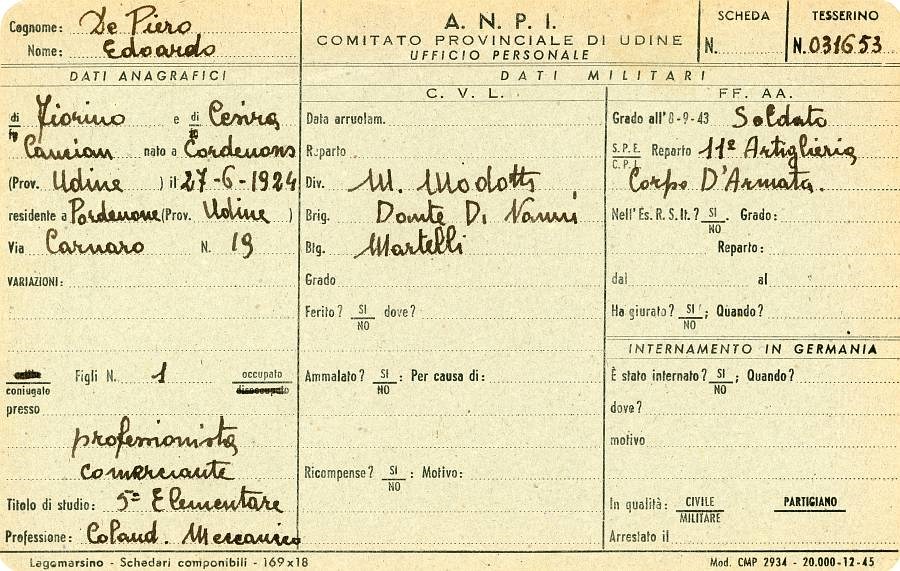 Cognome: De Piero
Nome: Edoardo
A. N. P. I.
COMITATO PROVINCIALE DI UDINE
UFFICIO PERSONALE
SCHEDA
N.
TESSERINO
N. 031653
DATI ANAGRAFICI
di Fiorino e di Cesira
fu fu
Cancian nato a Cordenons
(Prov. Udine ) il 27-6-1924
residente a Pordenone (Prov. Udine )
Via Carnaro N. 19
VARIAZIONI:
coniugato
Figli N. 1
occupato
disoccupato
presso
professionista
comerciante
Titolo di studio: 5ª Elementare
Professione: Coland. Meccanico
DATI MILITARI
C. V. L.
Data arruolam.
Reparto
Div. M. Modotti
Brig. Dante Di Nanni
Btg. Martelli
Grado
Ferito? SI dove?
NO
Ammalato? SI : Per causa di:
NO
Ricompense? SI : Motivo:
NO
FF. AA.
Grado all'8-9-43 Soldato
S.P.E. Reparto 11º Artiglieria
C.P.L.
Corpo D'Armata.
Nell'Es. R. S. It.? SI . Grado:
NO
Reparto:
dal al
Ha giurato? SI ; Quando?
NO
INTERNAMENTO IN GERMANIA
È stato internato? SI ; Quando?
NO
dove?
motivo
In qualità: CIVILE PARTIGIANO
MILITARE
Arrestato il
Lagomarsino - Schedari componibili - 169x18
Mod. CMP 2934 - 20.000-12-45